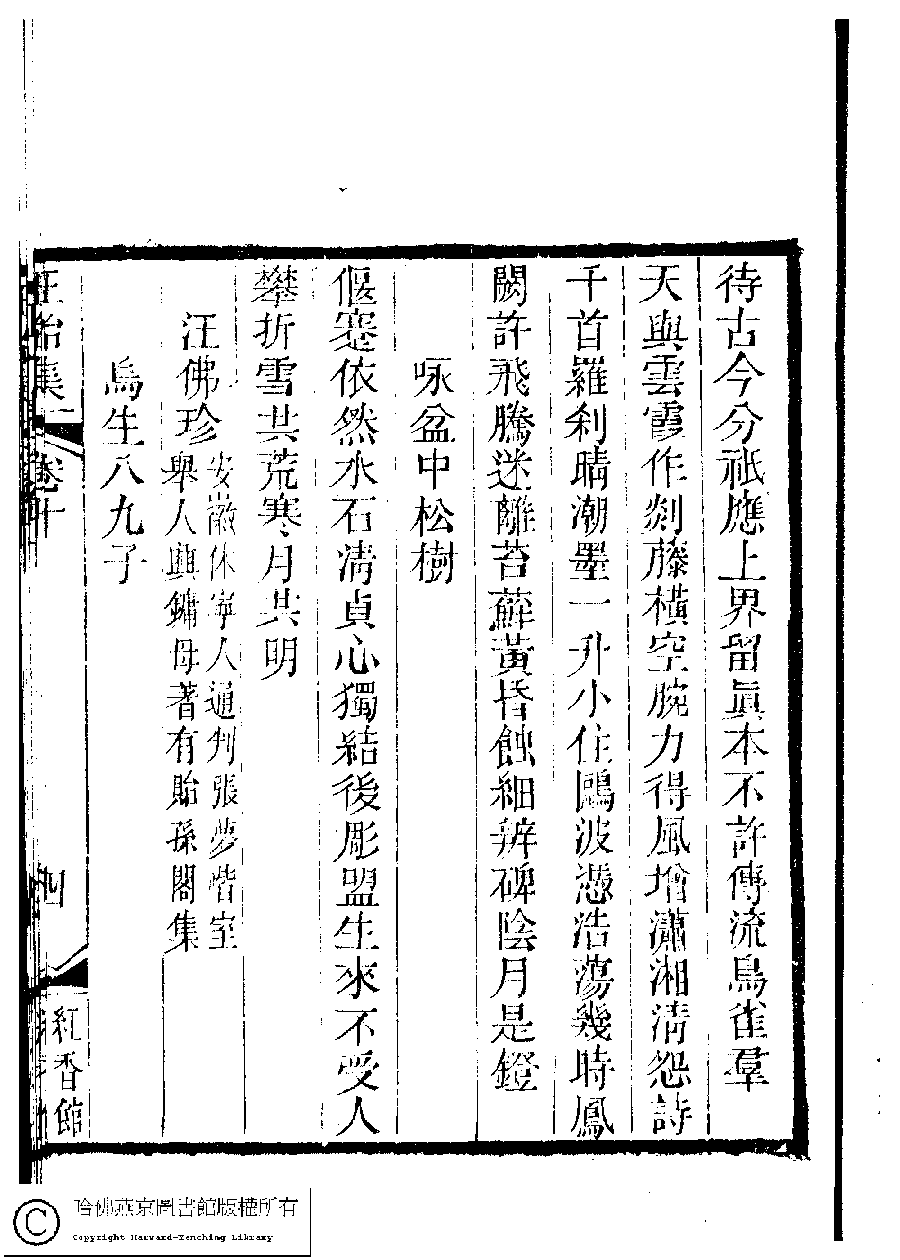 待古今分祇應上界留眞本不許傳流鳥雀羣
天與雲霞作剡藤橫空腕力得風增瀟湘清怨詩
千首羅刹晴潮墨一升小住鷗波憑浩蕩幾時鳳
闕許飛騰迷離苔蘚黃昏蝕細辨碑陰月是鐙
咏盆中松樹
偃蹇依然水石清貞心獨結後彫盟生來不受人
攀折雪共荒寒月共明
汪佛珍
安徽休寧人通判張夢喈室
舉人興鏞母著有貽孫閣集
烏生八九子
正始集
卷十
四
紅香館
哈佛燕京圖書館版權所有
Copyright Harvard-Yenching Library